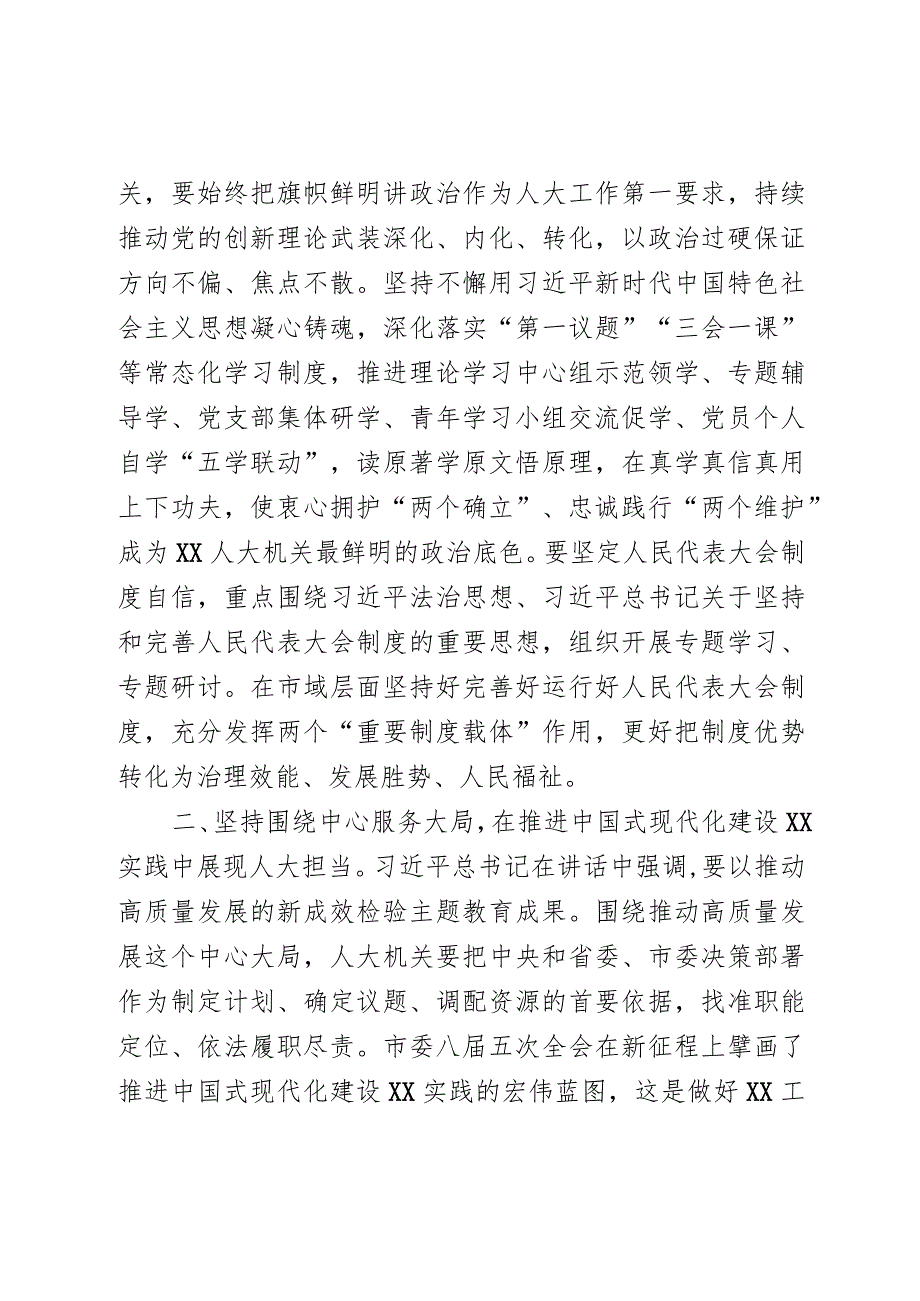 关，要始终把旗帜鲜明讲政治作为人大工作第一要求，持续
推动党的创新理论武装深化、内化、转化，以政治过硬保证
方向不偏、焦点不散。坚持不懈用习近平新时代中国特色社
会主义思想凝心铸魂，深化落实“第一议题”“三会一课”
等常态化学习制度，推进理论学习中心组示范领学、专题辅
导学、党支部集体研学、青年学习小组交流促学、党员个人
自学“五学联动”，读原著学原文悟原理，在真学真信真用
上下功夫，使衷心拥护“两个确立”、忠诚践行“两个维护”
成为XX人大机关最鲜明的政治底色。要坚定人民代表大会制
度自信，重点围绕习近平法治思想、习近平总书记关于坚持
和完善人民代表大会制度的重要思想，组织开展专题学习、
专题研讨。在市域层面坚持好完善好运行好人民代表大会制
度，充分发挥两个“重要制度载体”作用，更好把制度优势
转化为治理效能、发展胜势、人民福祉。
二、坚持围绕中心服务大局,在推进中国式现代化建设XX
实践中展现人大担当。习近平总书记在讲话中强调,要以推动
高质量发展的新成效检验主题教育成果。围绕推动高质量发
展这个中心大局，人大机关要把中央和省委、市委决策部署
作为制定计划、确定议题、调配资源的首要依据，找准职能
定位、依法履职尽责。市委八届五次全会在新征程上擘画了
推进中国式现代化建设XX实践的宏伟蓝图，这是做好XX工